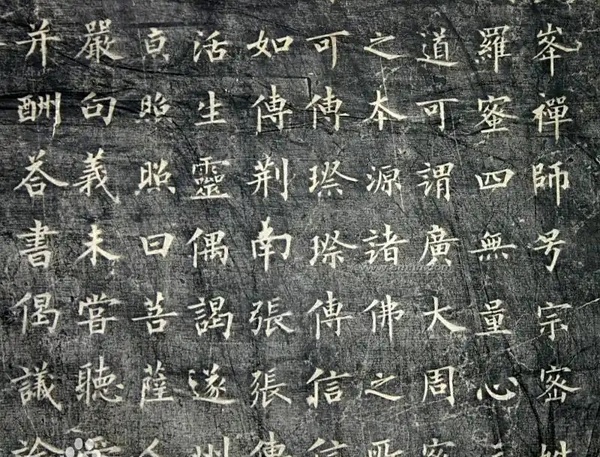 峯禪師号宗密姓
羅蜜四無量心
道可謂廣大周密
之本源諸佛之所
可傳璨璨傳信信
如傳荆南張張傳
活生靈偶謁遂州
照照曰菩薩人
嚴句義未嘗聽受
并酬荅書偈議論